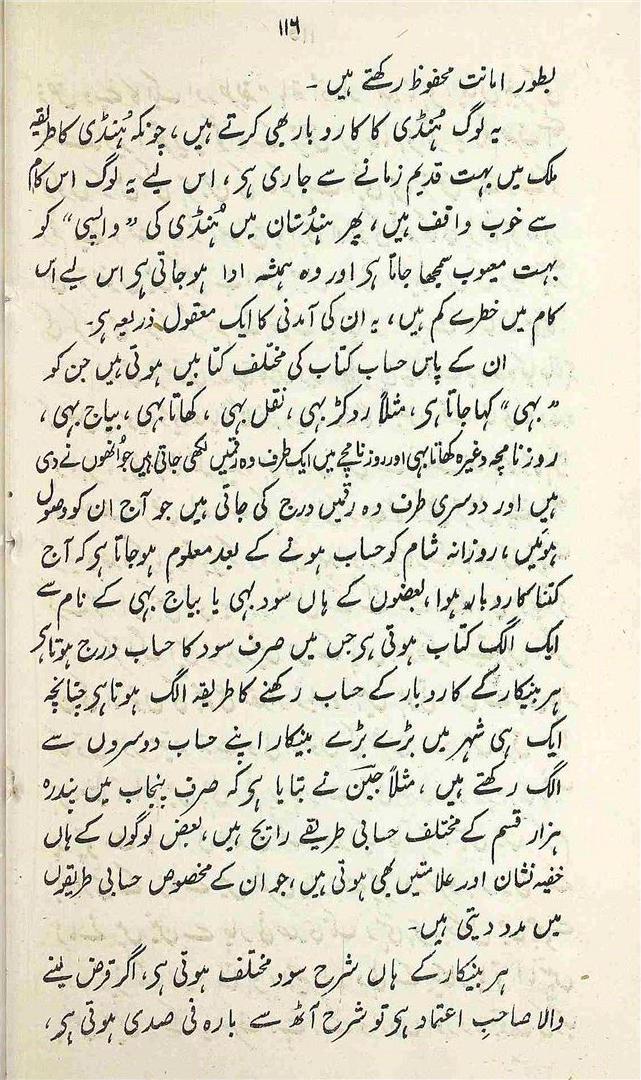 ۱۱۶
بطور امانت محفوظ رکھتے ہیں ۔
یہ لوگ ہُنڈی کا کاروبار بھی کرتے ہیں، چونکہ ہُنڈی کا طریقہ
ملک میں بہت قدیم زمانے سے جاری ہی، اس لیے یہ لوگ اس کام
سے خوب واقف ہیں، پھر ہندُستان میں ہُنڈی کی ”واپسی“ کو
بہت معیوب سمجھا جاتا ہی اور وہ ہمیشہ ادا ہوجاتی ہی اس لیے اس
کام میں خطرے کم ہیں، یہ ان کی آمدنی کا ایک معقول ذریعہ ہی۔
ان کے پاس حساب کتاب کی مختلف کتابیں ہوتی ہیں جن کو
”بہی“ کہا جاتا ہی، مثلاً روکڑ بہی، نقل بہی، کھاتا بہی، بیاج بہی،
روزنامچہ وغیرہ کھاتا بہی اور روزنامچے میں ایک طرف وہ رقمیں لکھی جاتی ہیں جو اُنھوں نے دی
ہیں اور دوسری طرف وہ رقمیں درج کی جاتی ہیں جو آج ان کو وصول
ہوئیں، روزانہ شام کو حساب ہونے کے بعد معلوم ہوجاتا ہی کہ آج
کتنا کاروبار ہوا، بعضوں کے ہاں سود بہی یا بیاج بہی کے نام سے
ایک الگ کتاب ہوتی ہی جس میں صرف سود کا حساب درج ہوتا ہی
ہر بینکار کے کاروبار کے حساب رکھنے کا طریقہ الگ ہوتا ہی چنانچہ
ایک ہی شہر میں بڑے بڑے بینکار اپنے حساب دوسروں سے
الگ رکھتے ہیں، مثلاً جین نے بتایا ہی کہ صرف پنجاب میں پندرہ
ہزار قسم کے مختلف حسابی طریقے رایج ہیں، بعض لوگوں کے ہاں
خفیہ نشان اور علامتیں بھی ہوتی ہیں، جو ان کے مخصوص حسابی طریقوں
میں مدد دیتی ہیں۔
ہر بینکار کے ہاں شرح سود مختلف ہوتی ہی، اگر قرض لینے
والا صاحبِ اعتماد ہی تو شرح آٹھ سے بارہ فی صدی ہوتی ہی،